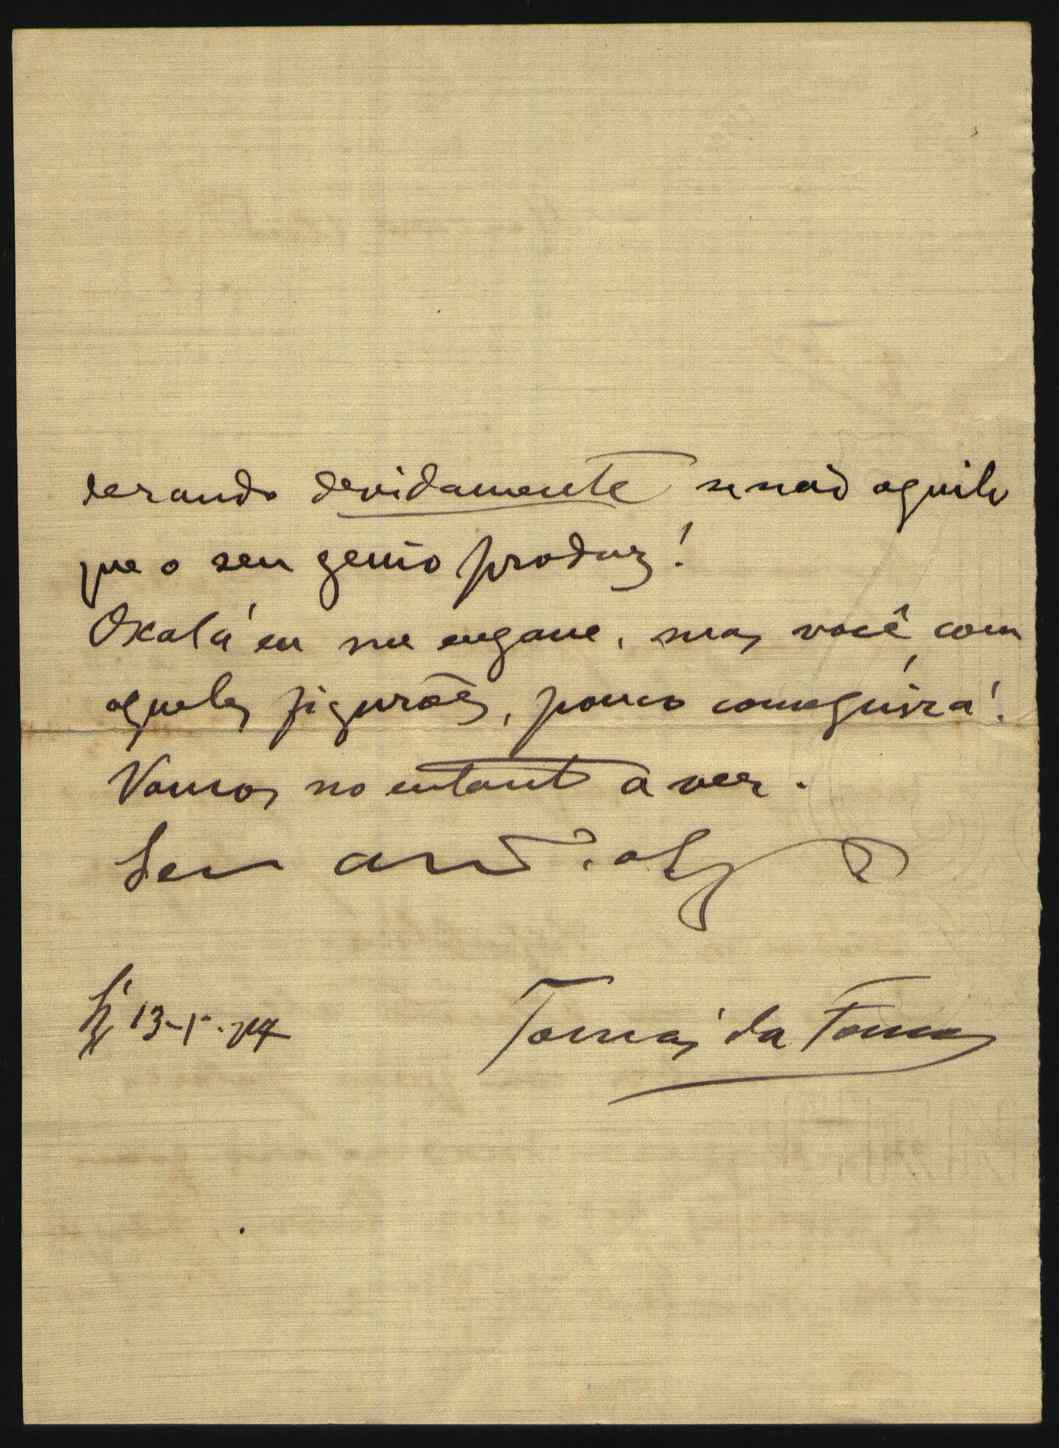 derando devidamente senão aquilo
que o seu genio produz!
Oxalá eu me engane, mas você com
aqueles figurões, pouco conseguirá!
Vamos no entanto a ver.
Seu am.º
13-1-
Tomás da Fonseca